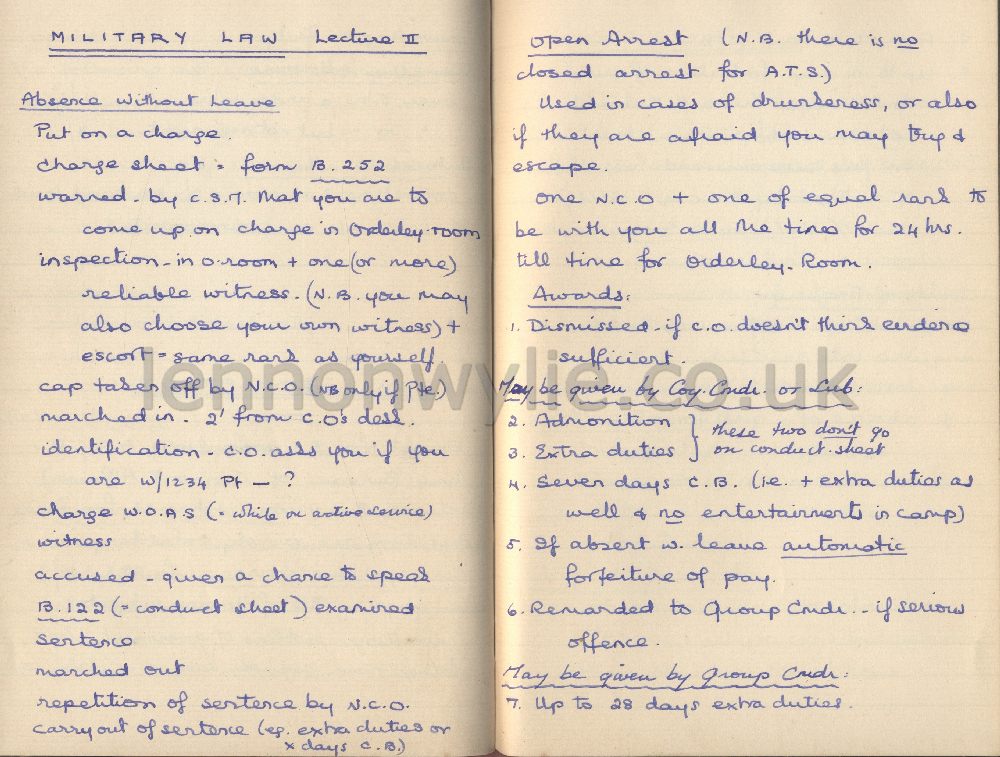 MILITARY LAW Lecture II
Absence Without Leave
Put on a charge.
charge sheet = form B.252
warned - by C.S.M. that you are to
come up on charge in Orderley-room
inspection - in O-room + one (or more)
reliable witness. (N.B. you may
also choose your own witness) +
escort = same rank as yourself.
cap taken off by N.C.O. (NB only if Pte.)
marched in - 2' from C.O's desk.
identification - C.O. asks you if you
are W/1234 Pt — ?
charge W.O.A.S (= while on active service)
witness
accused - given a chance to speak
B.122 (= conduct sheet) examined
sentence
marched out
repetition of sentence by N.C.O.
carry out of sentence (eg. extra duties or
x days C.B.)
Open Arrest (N.B. there is no
closed arrest for A.T.S.)
Used in cases of drunkeness, or also
if they are afraid you may try &
escape.
one N.C.O + one of equal rank to
be with you all the time for 24 hrs.
till time for Orderley-Room.
Awards:
1. Dismissed - if C.O. doesn't think evidence
sufficient.
May be given by Coy. Cmdr. or Sub:
2. Admonition } these two don't go
3. Extra duties } on conduct sheet
4. Seven days C.B. (i.e. + extra duties as
well & no entertainments in camp)
5. If absent w. leave automatic
forfeiture of pay.
6. Remanded to Group Cmdr. - if serious
offence.
May be given by Group Cmdr:
7. Up to 28 days extra duties.
lennonwylie.co.uk